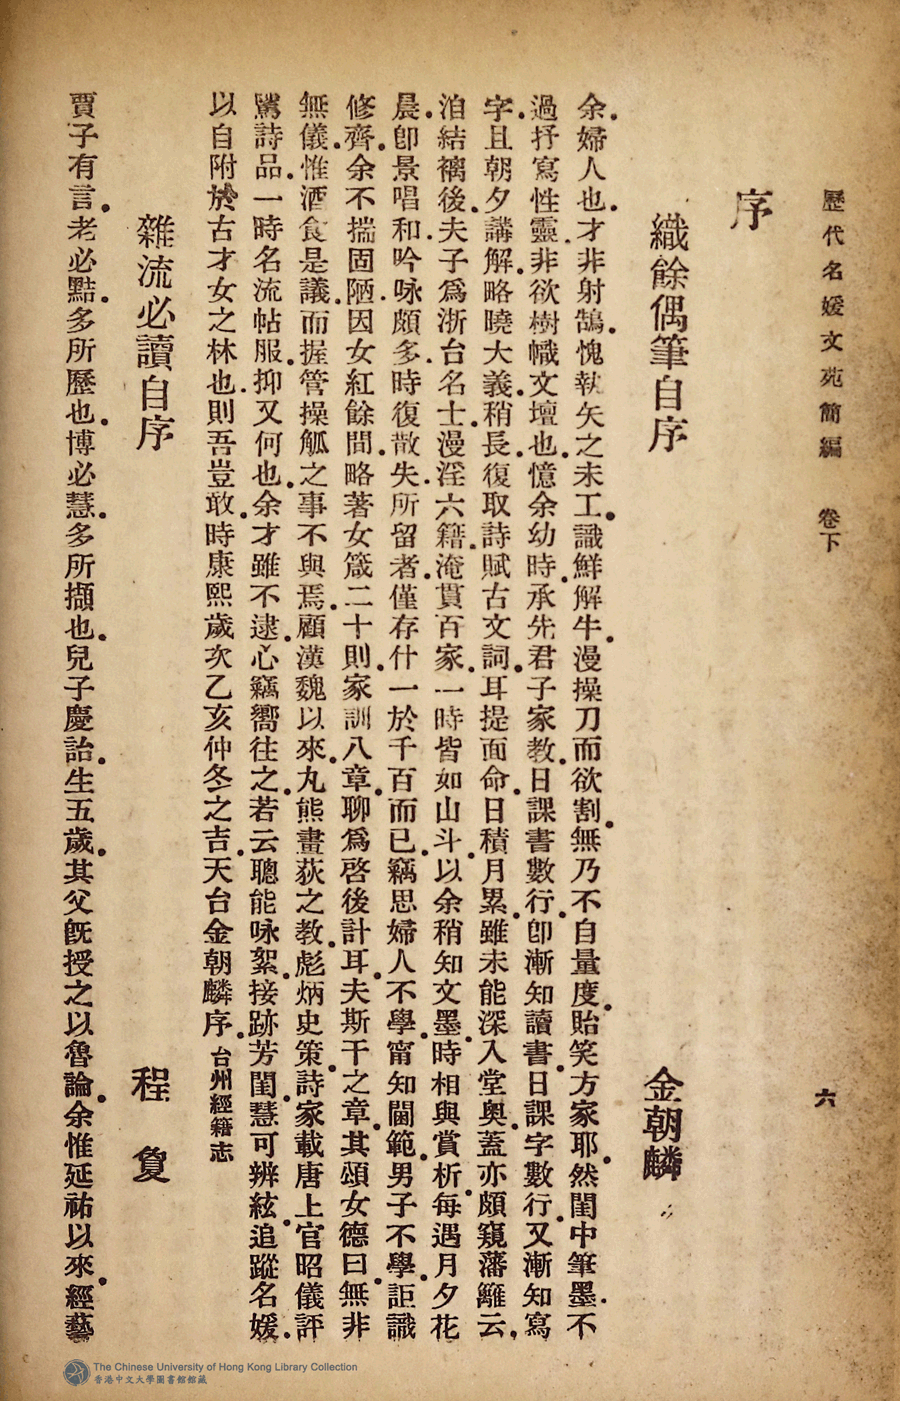 歷代名媛文苑簡編 卷下 六
序
織餘偶筆自序 金朝麟
余婦人也.才非射鵠.愧執矢之未工.識鮮解牛.漫操刀而欲割.無乃不自量度.貽笑方家耶.然閨中筆墨.不
過抒寫性靈.非欲樹幟文壇也.憶余幼時.承先君子家教.日課書數行.卽漸知讀書.日課字數行.又漸知寫
字.且朝夕講解.略曉大義.稍長.復取詩賦古文詞.耳提面命.日積月累.雖未能深入堂奧.蓋亦頗窺藩籬云.
洎結褵後.夫子爲浙台名士.漫淫六籍.淹貫百家.一時皆如山斗.以余稍知文墨.時相與賞析.每遇月夕花
晨.卽景唱和.吟咏頗多.時復散失.所留者.僅存什一於千百而已.竊思婦人不學.甯知閫範.男子不學.詎識
修齊.余不揣固陋.因女紅餘間.略著女箴二十則.家訓八章.聊爲啓後計耳.夫斯干之章.其頌女德曰.無非
無儀.惟酒食是議.而握管操觚之事不與焉.顧漢魏以來.丸熊畫荻之教.彪炳史策.詩家載唐上官昭儀評
騭詩品.一時名流帖服.抑又何也.余才雖不逮.心竊嚮往之.若云聰能咏絮.接跡芳閨.慧可辨絃.追蹤名媛.
以自附於古才女之林也.則吾豈敢.時康熙歲次乙亥仲冬之吉.天台金朝麟序.台州經籍志
雜流必讀自序 程夐
賈子有言.老必黠.多所歷也.博必慧.多所擷也.兒子慶詒.生五歲.其父旣授之以魯論.余惟延祐以來.經藝
The Chinese University of Hong Kong Library Collection
香港中文大學圖書館館藏